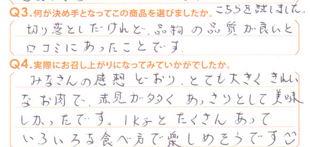 Q3.何が決め手となってこの商品を選びましたか。こちらを試しました。
切り落としだけれど、品物の品質が良いと
口コミにあったことです。
Q4.実際にお召し上がりになってみていかがでしたか。
みなさんの感想どおり、とても大きくきれい
なお肉で、赤見が多く あっさりとして美味
しかったです。1kgとたくさんあって
いろいろな食べ方で楽しめそうです